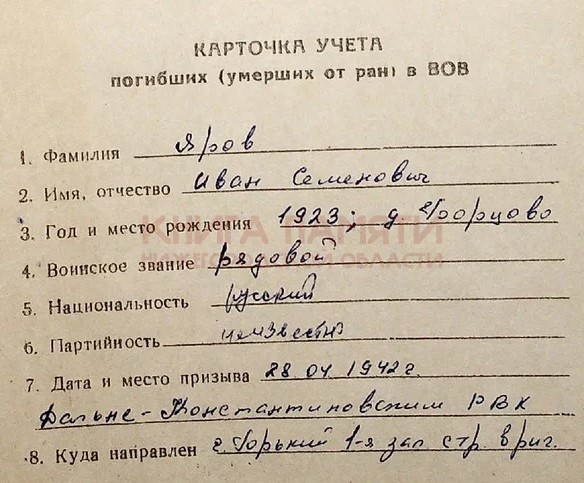 КАРТОЧКА УЧЕТА
погибших (умерших от ран) в ВОВ
1. Фамилия Яров
2. Имя, отчество Иван Семенович
3. Год и место рождения 1923; д
КНИГА ПАМЯТИ
НИЖЕГОРОДСКОЙ ОБЛАСТИ
4. Воинское звание рядовой
5. Национальность русский
6. Партийность неизвестно
7. Дата и место призыва 28 04 1942 г.
Дальне-Константиновским РВК
8. Куда направлен г. Горький 1-я зап стр. бриг.